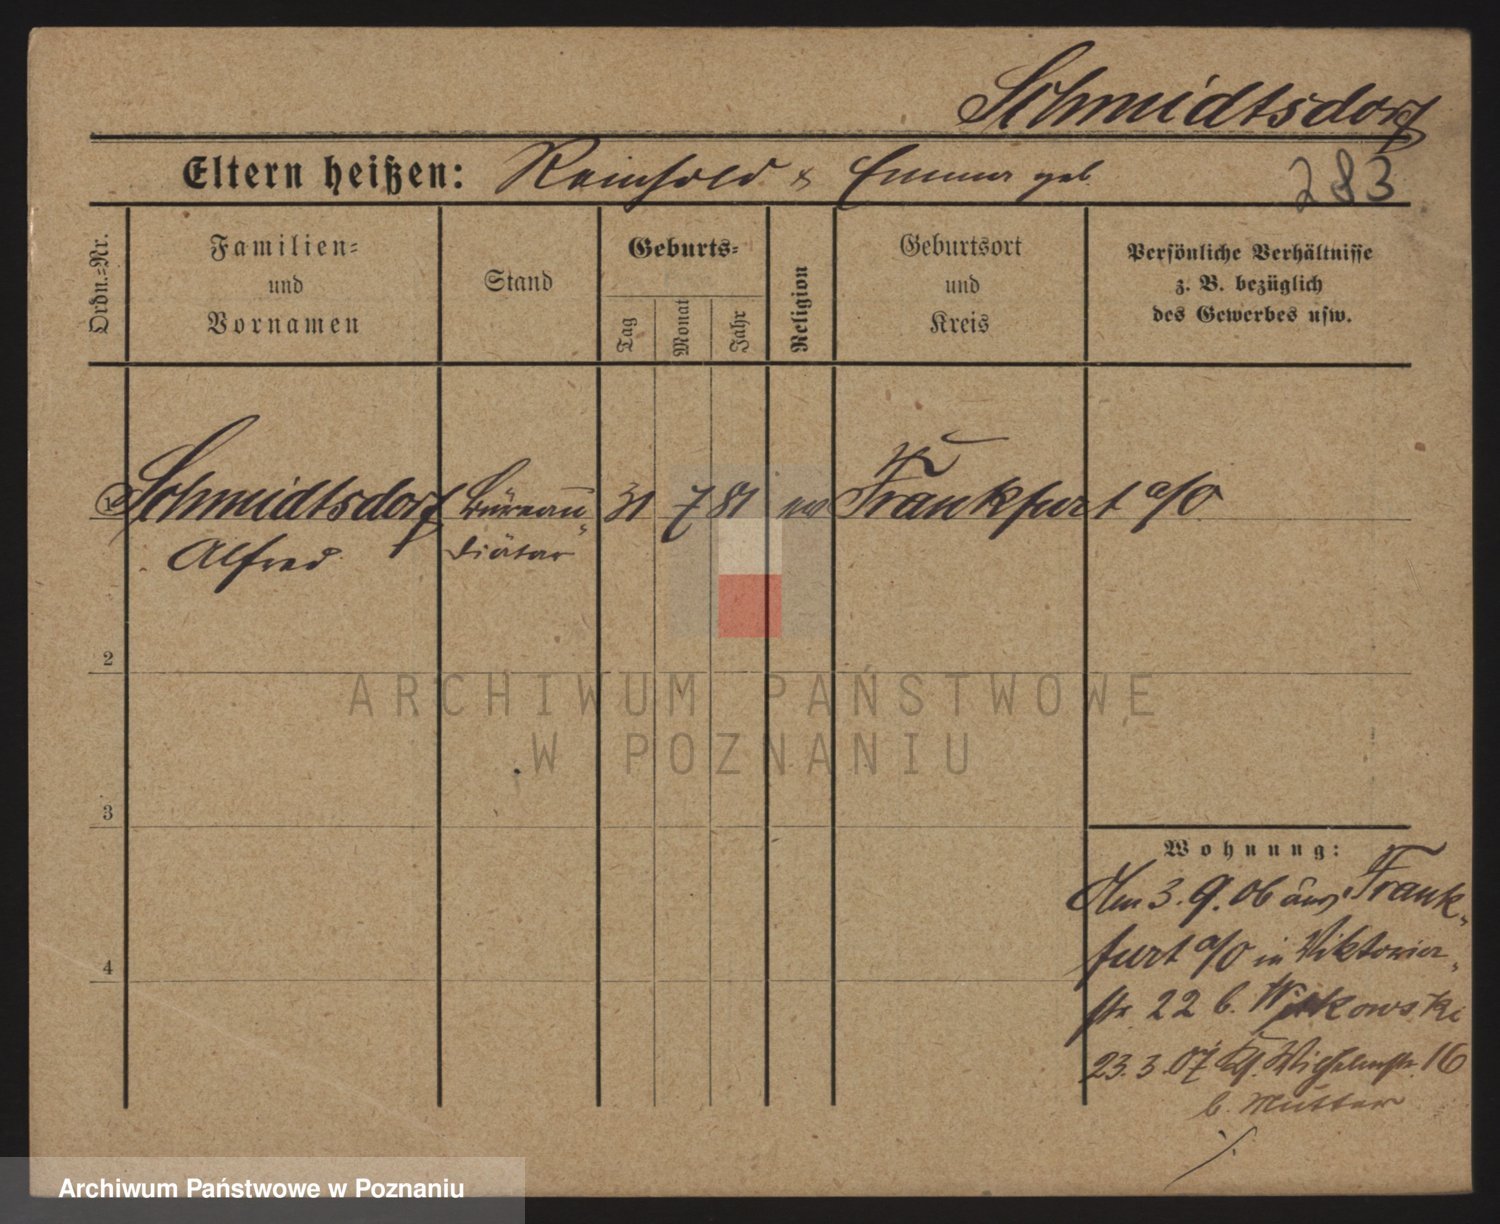 Schmidtsdorf
Eltern heißen: Reinhold & Emma geb.
283
Ordn.=Nr.
Familien=
und
Vornamen
Stand
Geburts=
Tag
Monat
Jahr
Religion
Geburtsort
und
Kreis
Persönliche Verhältnisse
z. B. bezüglich
des Gewerbes usw.
1 Schmidtsdorf Büreau= 31 7 81 ev Frankfurt a/O
Alfred diätar
2
ARCHIWUM PAŃSTWOWE
W POZNANIU
3
Wohnung:
Am 3.9.06 aus Frank=
furt a/O in Viktoria=
4
str 22 b. Witkowski
23.3.07 Kg. Wilhelmstr. 16
b. Mutter
Archiwum Państwowe w Poznaniu